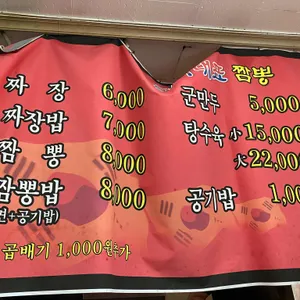 짬뽕
짜장 6,000
짜장밥 7,000
짬뽕 8,000
짬뽕밥 8,000
(면+공기밥)
곱배기 1,000원추가
군만두 5,000
탕수육 小 15,000
大 22,000
공기밥